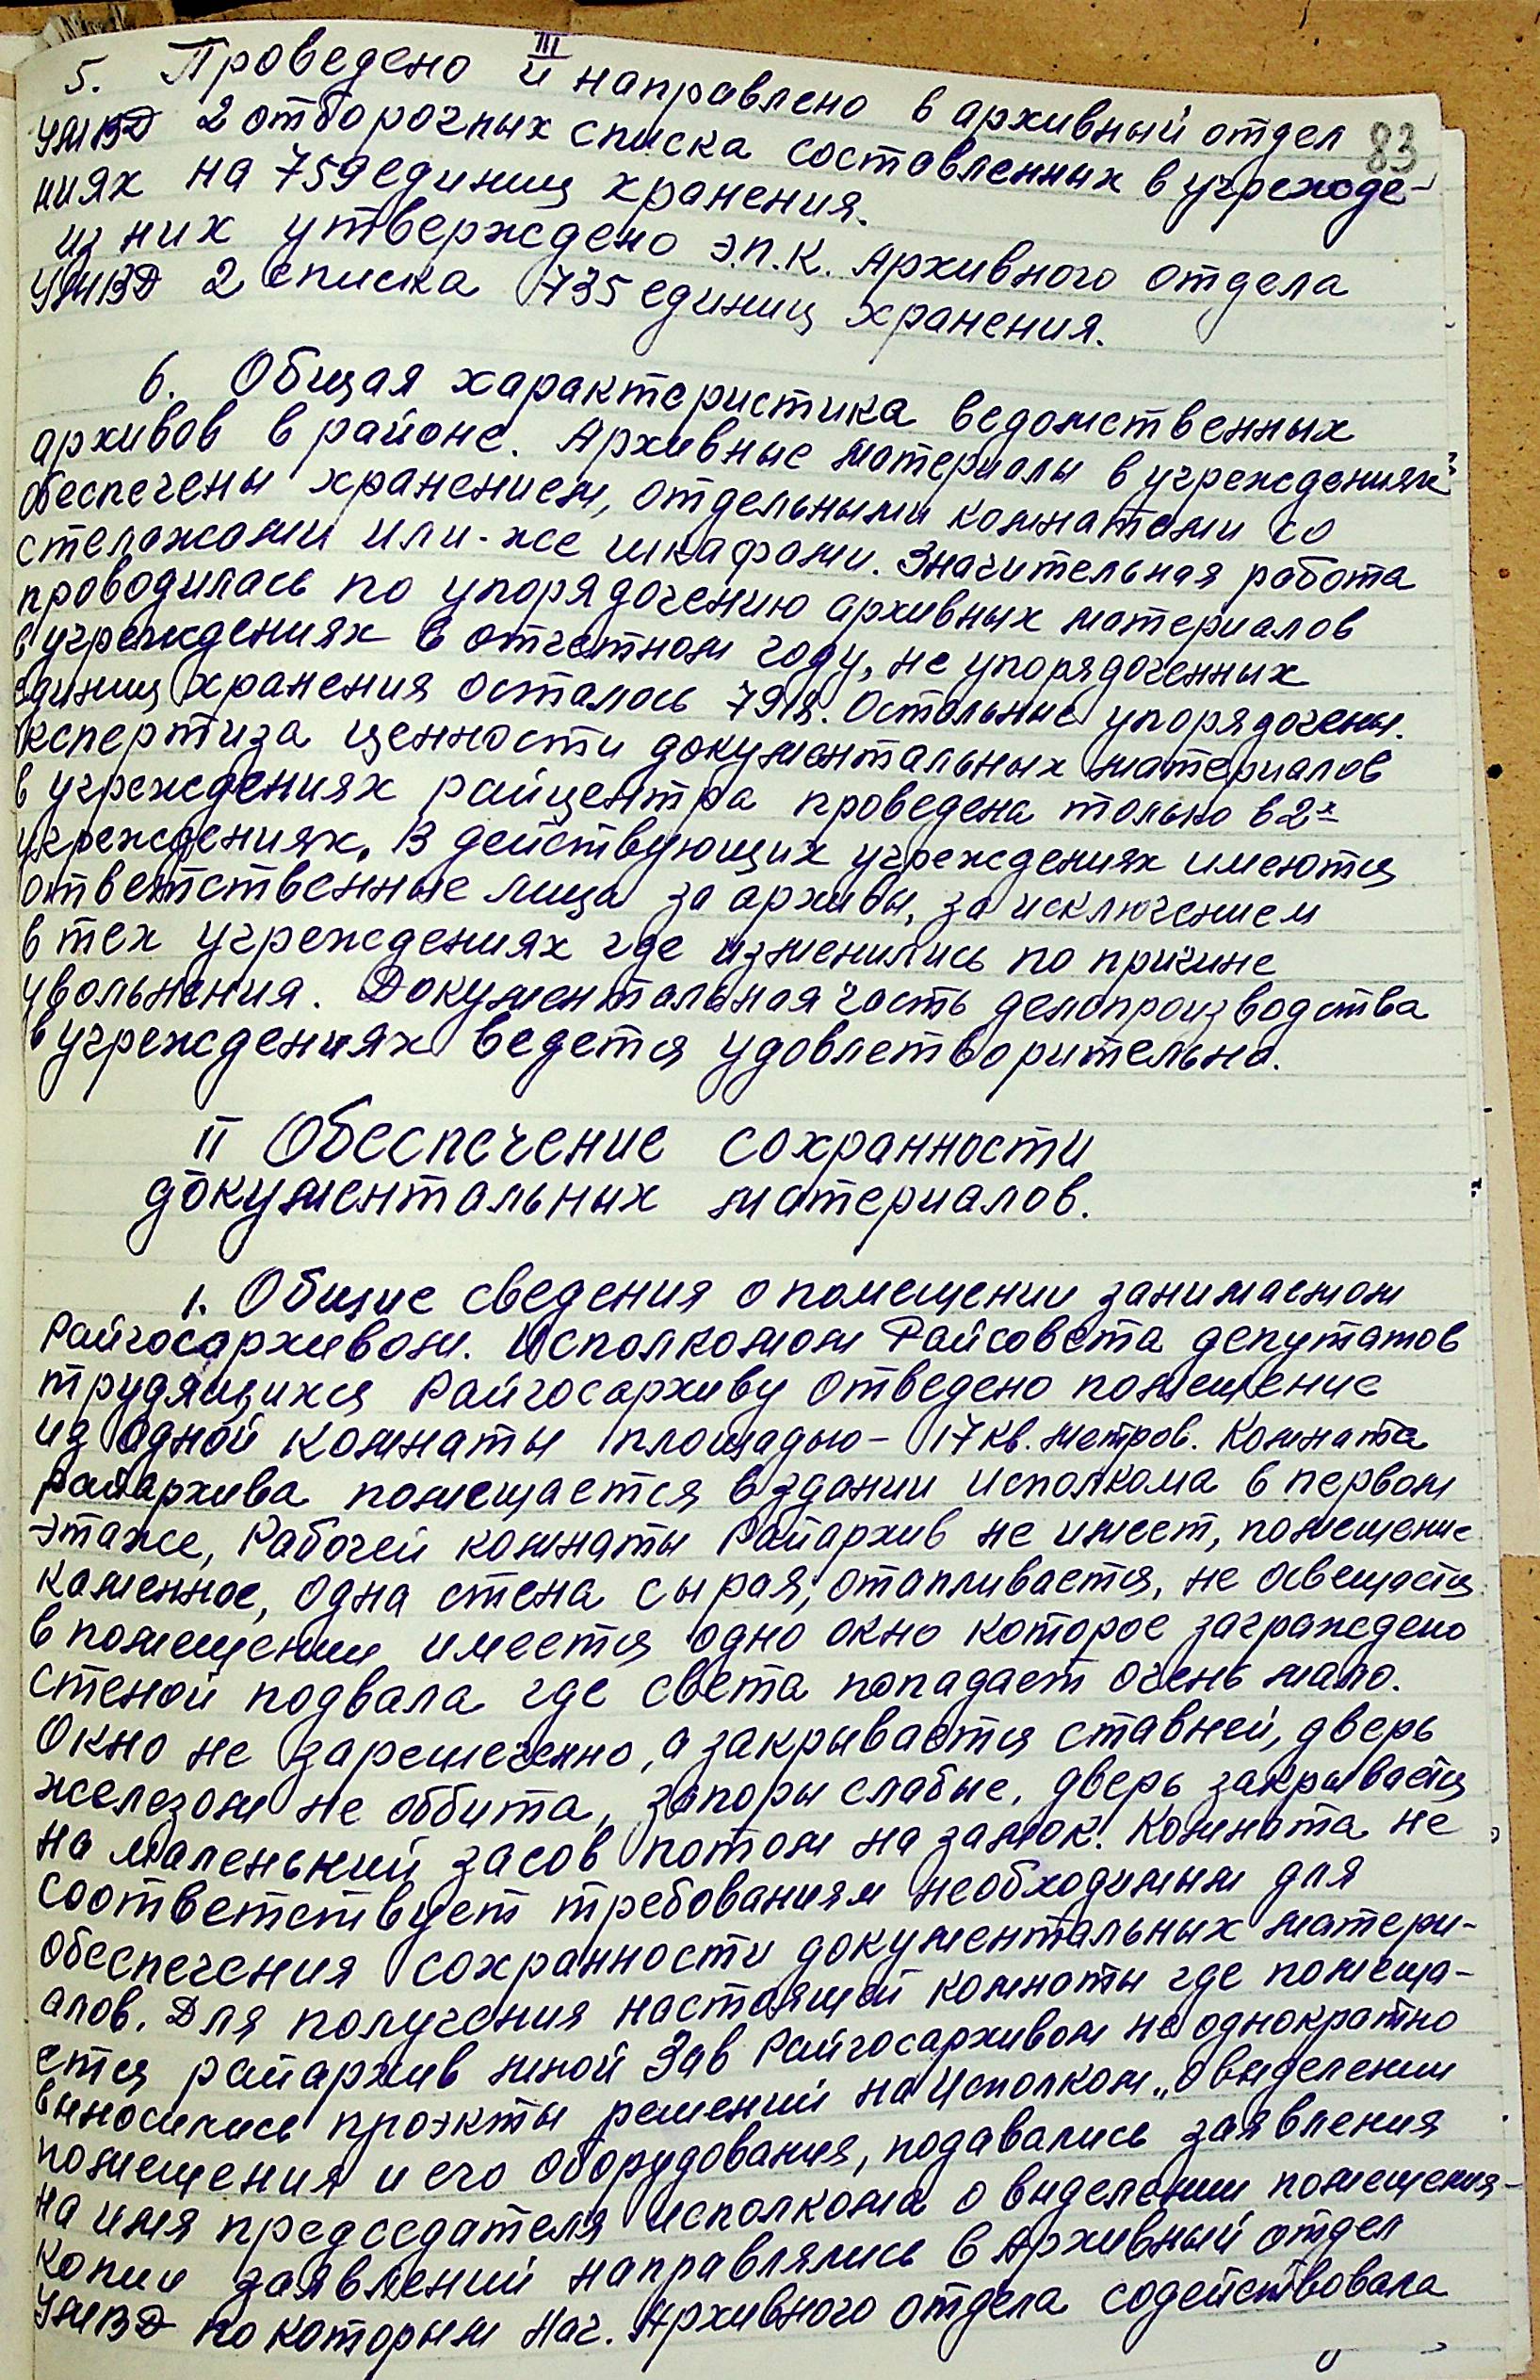 III
5. Проведено и направлено в архивный отдел
83
УМВД 2 отборочных списка составленных в учрежде-
ниях на 759 единиц хранения.
из них утверждено Э.П.К. Архивного отдела
УМВД 2 списка 735 единиц хранения.
6. Общая характеристика ведомственных
архивов в районе. Архивные материалы в учреждениях
обеспечены хранением, отдельными комнатами со
стелажами или-же шкафами. Значительная работа
проводилась по упорядочению архивных материалов
в учреждениях в отчетном году, не упорядоченных
единиц хранения осталось Остальные упорядочены.
Экспертиза ценности документальных материалов
в учреждениях райцентра проведена только в 2х
учреждениях. В действующих учреждениях имеются
ответственные лица за архивы, за исключением
в тех учреждениях где изменились по причине
увольнения. Документальная часть делопроизводства
в учреждениях ведется удовлетворительно.
II Обеспечение сохранности
документальных материалов.
1. Общие сведения о помещении занимаемом
Райгосархивом. Исполкомом Райсовета депутатов
трудящихся Райгосархиву отведено помещение
из одной комнаты площадью - 17 кв. метров. Комната
Райархива помещается в здании исполкома в первом
этаже, Рабочей комнаты Райархив не имеет, помещение
каменное, одна стена сырая, отапливается, не освещается
в помещении имеется одно окно которое заграждено
стеной подвала где света попадает очень мало.
Окно не зарешеченно, а закрывается ставней, дверь
железом не оббита, запоры слабые, дверь закрывается
на маленький засов потом на замок. Комната не
соответствует требованиям необходимым для
обеспечения сохранности документальных матери-
алов. Для получения настоящей комнаты где помеща-
ется райархив мной Зав Райгосархивом не однократно
выносились проэкты решений на Исполком „О выделении
помещения и его оборудования, подавались заявления
на имя председателя исполкома о выделении помещения-
копии заявлений направлялись в Архивный отдел
УМВД по которым Нач. Архивного отдела содействовала